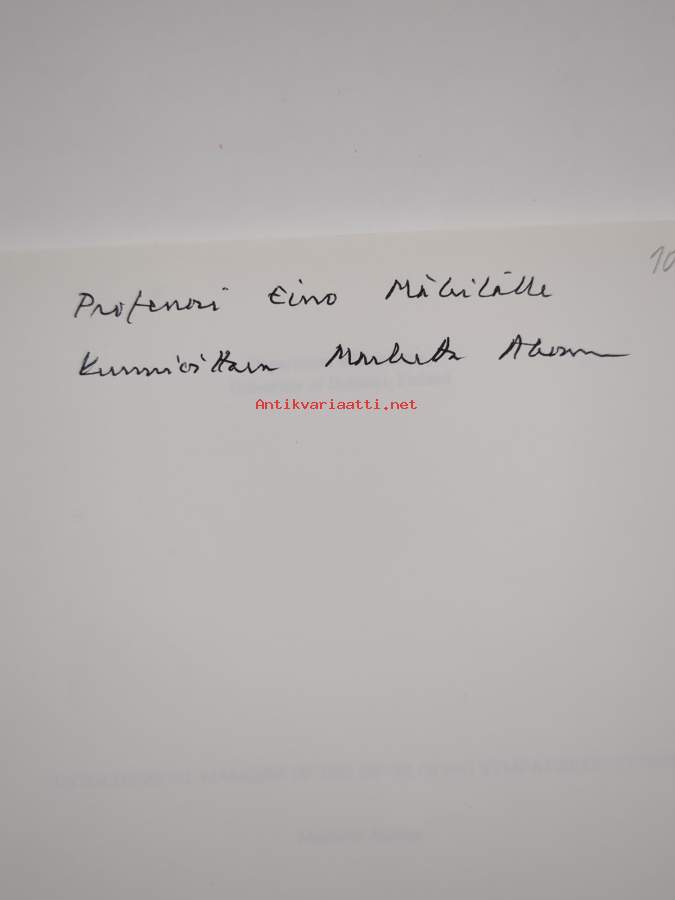 10
Professori Eino Mäkilälle
Kunnioittaen Marketta Ahonen
Antikvariaatti.net